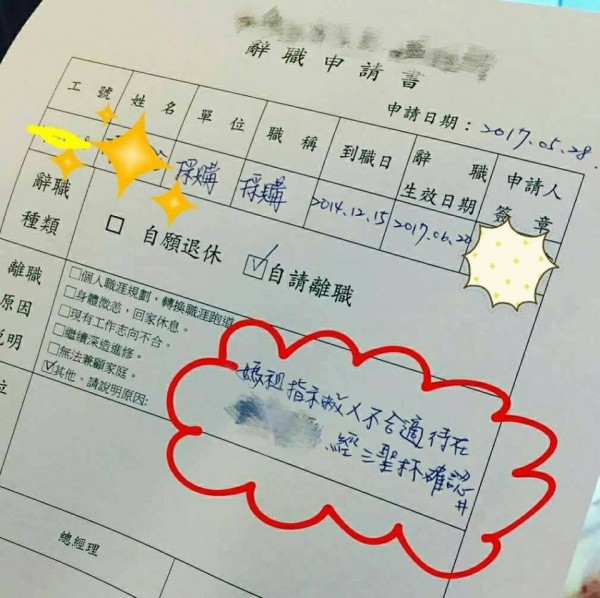 辭職申請書
申請日期：2017.05.28.
工號 姓名 單位 職稱 到職日 辭職生效日期 申請人簽章
採購 採購 2014.12.15 2017.06.20
辭職種類
□ 自願退休 ☑自請離職
離職原因說明
□個人職涯規劃，轉換職涯跑道
□身體微恙，回家休息。
□現有工作志向不合。
□繼續深造進修。
□無法兼顧家庭。
☑其他。請說明原因:
媽祖指示敝人不合適待在
經三聖杯確認#
位
總經理